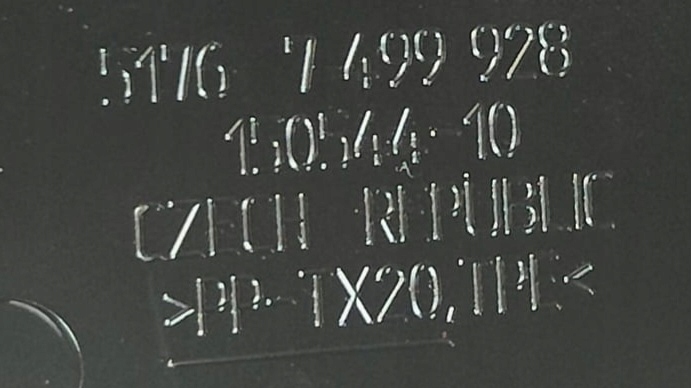 5176 7 499 928
150544-10
CZECH REPUBLIC
>PP-TX20,TPE<